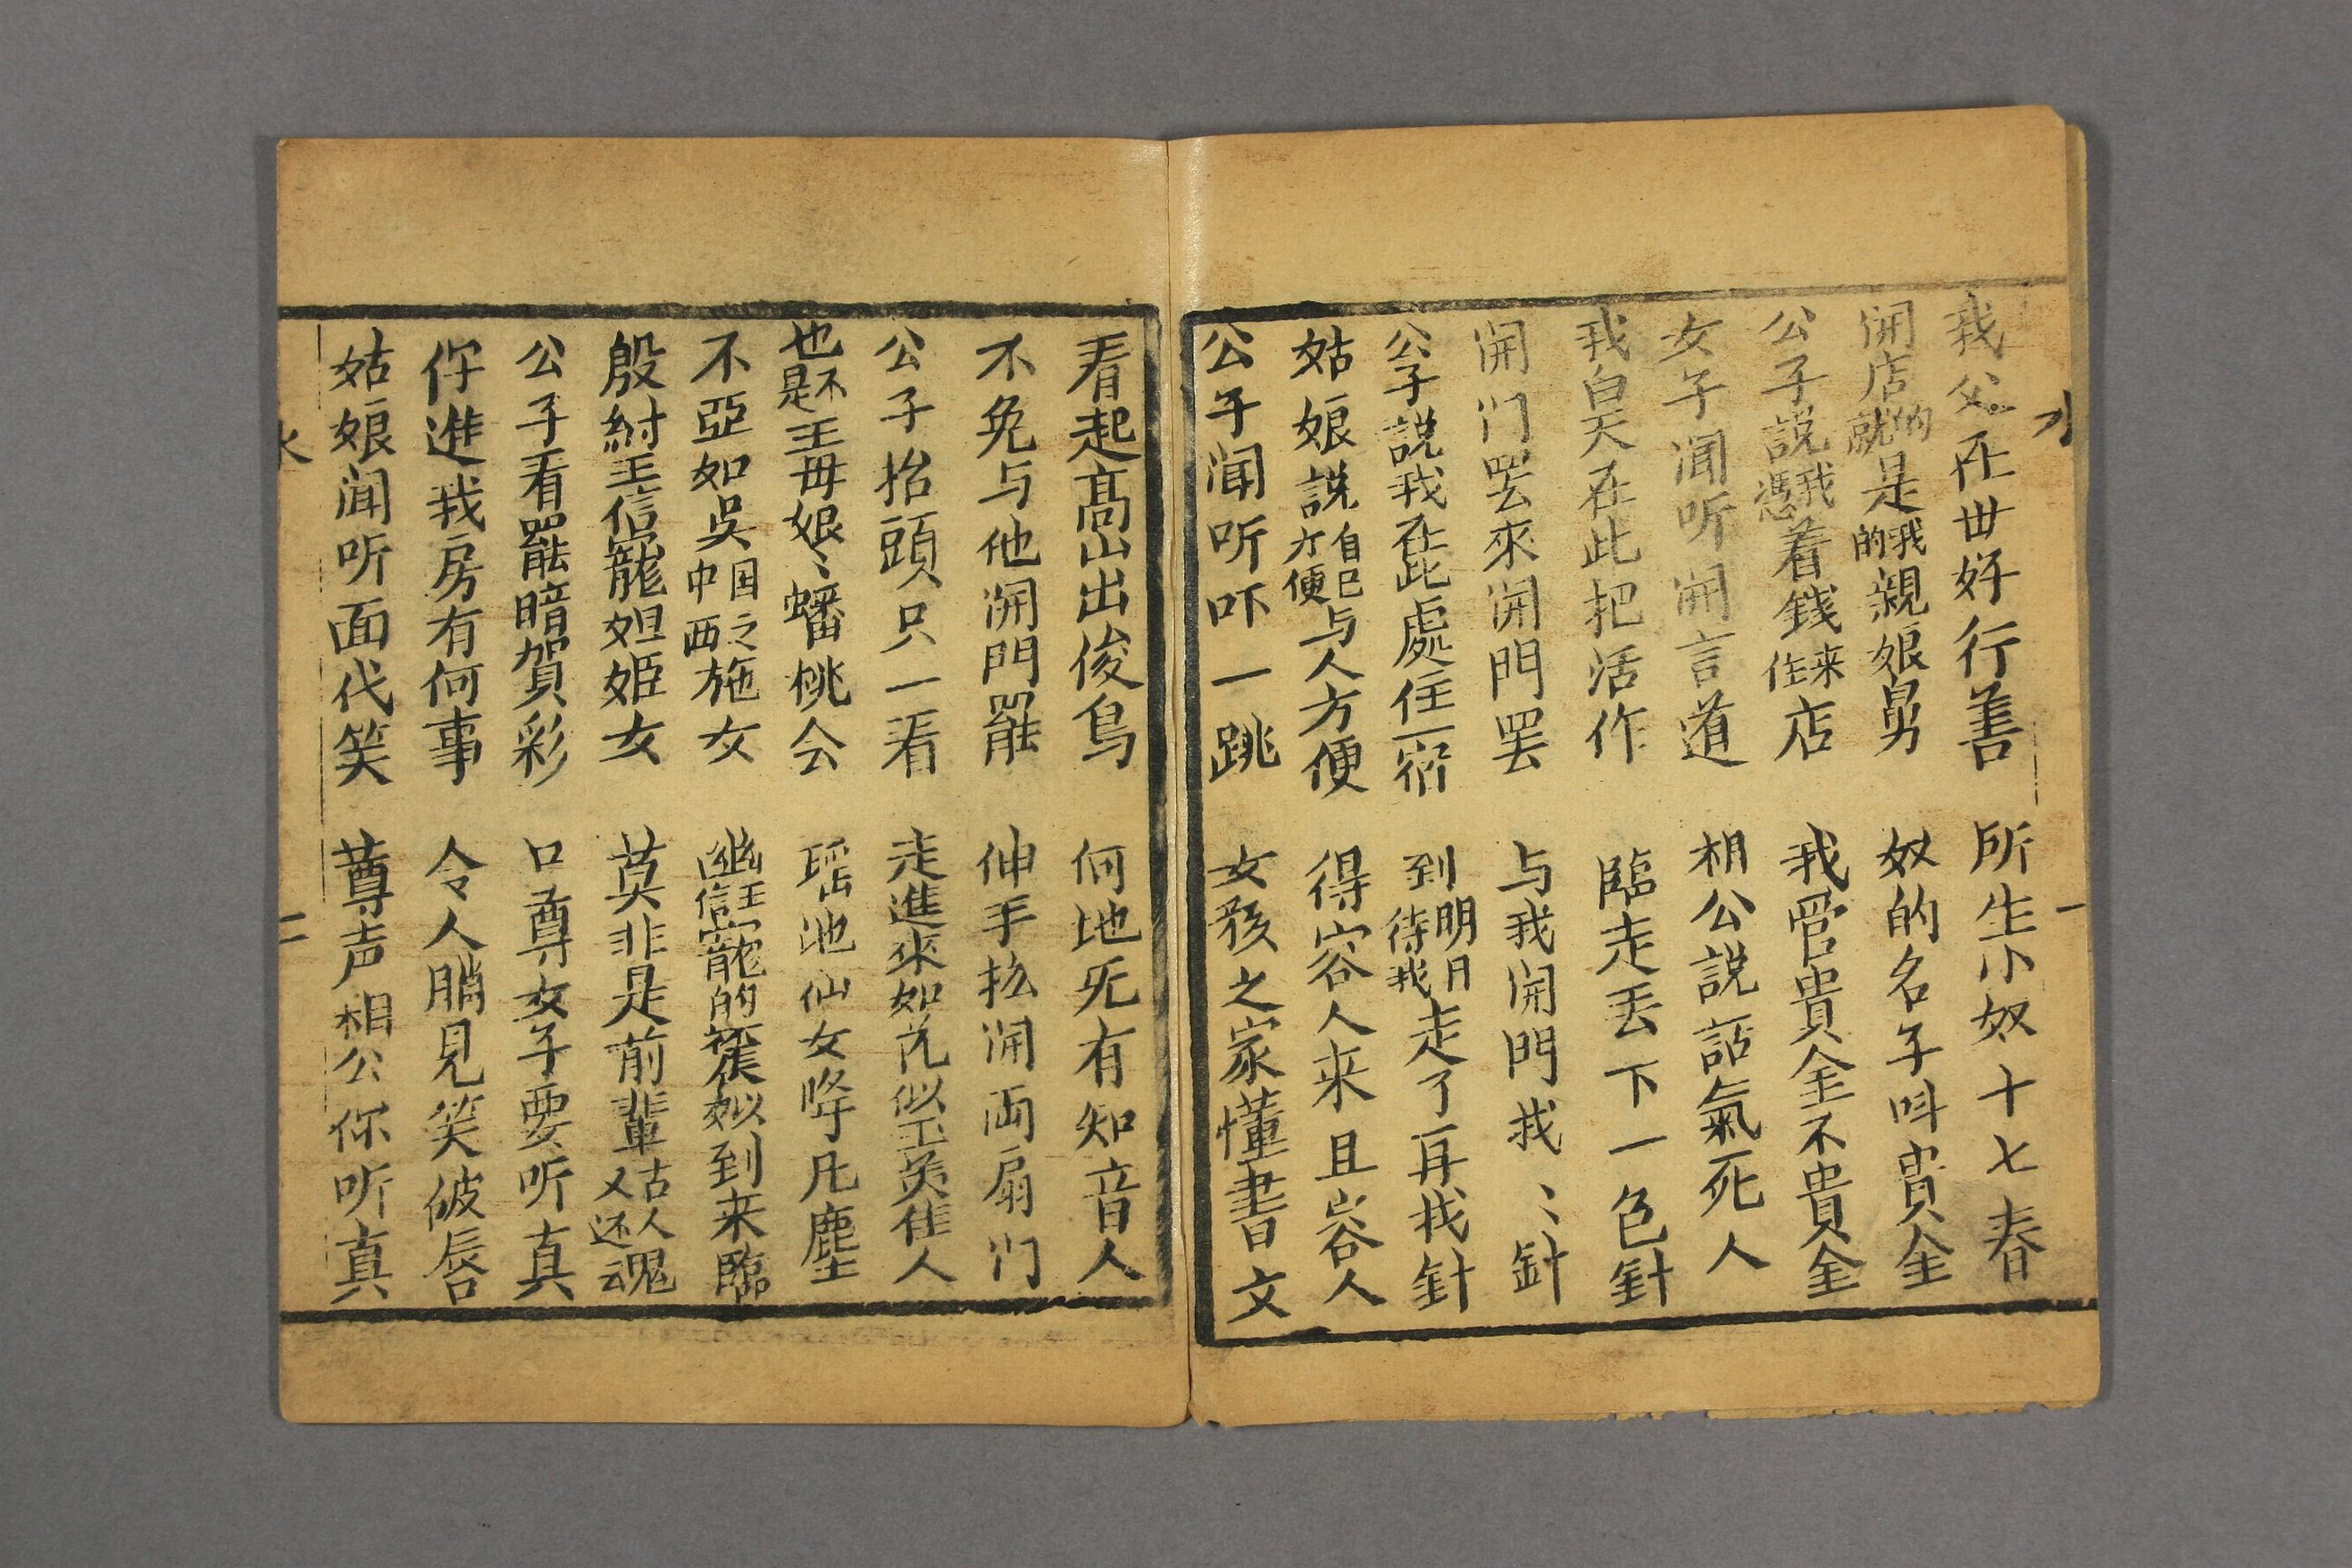 水 一
我父在世好行善 所生小奴十七春
開店的就是我的親娘舅 奴的名子叫貴金
公子說我憑着錢来住店 我管貴金不貴金
女子闻听開言道 相公説話氣死人
我白天在此把活作 臨走丢下一色針
開门罢來開門罢 与我開門我〻針
公子説我在此處住一宿 到明日待我走了再找針
姑娘説自己方便与人方便 得容人来且容人
公子闻听吓一跳 女孩之家懂書文
看起高山出俊鳥 何地无有知音人
不免与他開門罷 伸手拡開両扇门
公子抬頭只一看 走進來如花似玉美佳人
也不是王母娘〻蟠桃会 瑶池仙女降凡塵
不亞如吳国中之西施女 幽王信寵的褒姒到来臨
殷紂王信寵妲姬女 莫非是前輩古人又还魂
公子看罷暗賀彩 口尊女子要听真
你進我房有何事 令人瞧見笑破唇
姑娘闻听面代笑 尊声相公你听真
水 二